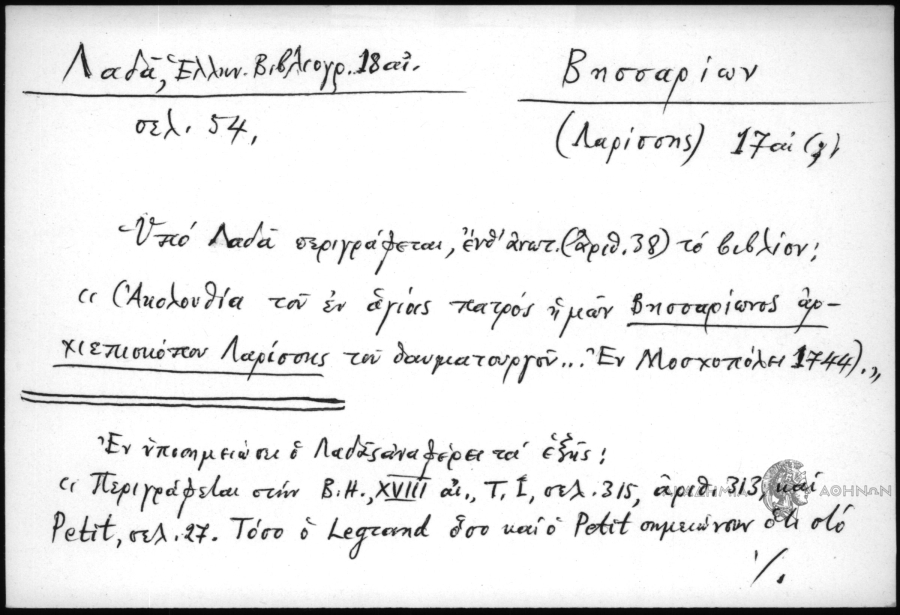 Λαδᾶ, Ἑλλην. Βιβλιογρ. 18 αἰ.
Βησσαρίων
σελ. 54,
(Λαρίσσης) 17 αἰ (;)
Ὑπό Λαδᾶ περιγράφεται, ἔνθ' ἀνωτ. (ἀριθ. 38) τό βιβλίον:
"(Ἀκολουθία τοῦ ἐν ἁγίοις πατρός ἡμῶν Βησσαρίωνος ἀρ-
χιεπισκόπου Λαρίσσης τοῦ θαυματουργοῦ... Ἐν Μοσχοπόλει 1744)."
Ἐν ὑποσημειώσει ὁ Λαδᾶς ἀναφέρει τά ἑξῆς:
"Περιγράφεται στήν B.H., XVIII αἰ., T. I, σελ. 315, ἀριθ. 313, καί
Petit, σελ. 27. Τόσο ὁ Legrand ὅσο καί ὁ Petit σημειώνουν ὅτι στό
·/.
ΑΚΑΔΗΜΙΑ ΑΘΗΝΩΝ